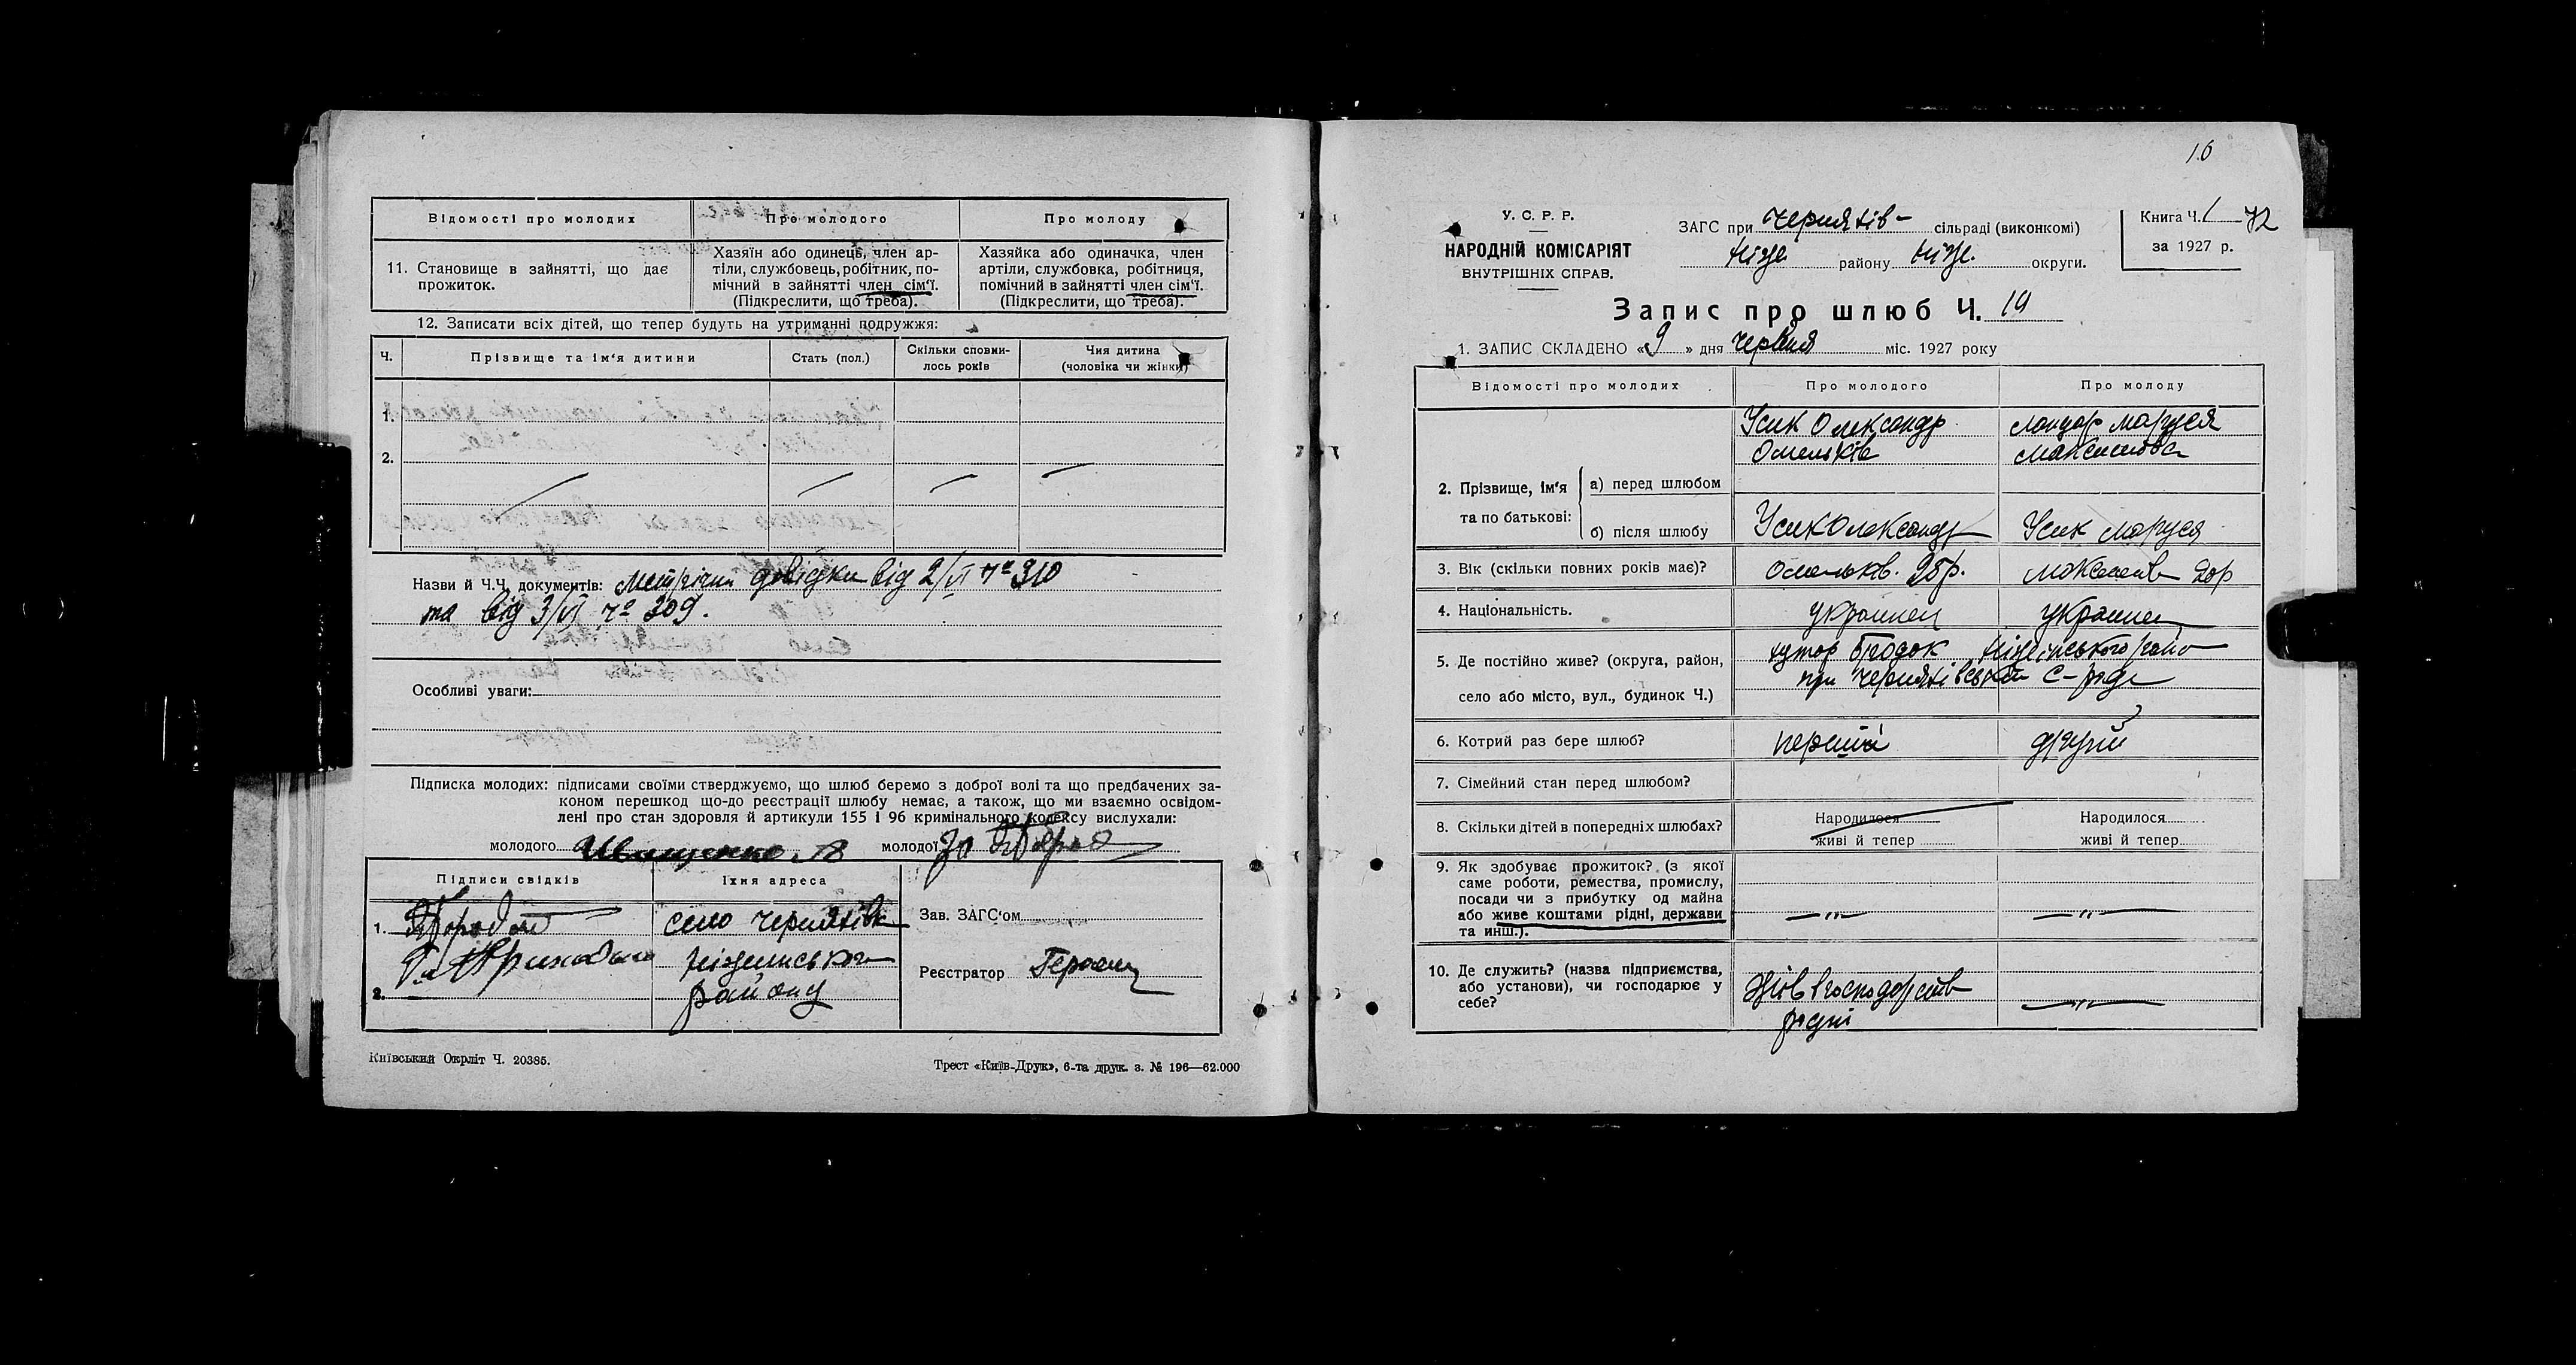 Відомості про молодих
Про молодого
Про молоду
11. Становище в зайнятті, що дає
прожиток.
Хазяїн або одинець, член ар-
тіли, службовець, робітник, по-
мічний в зайнятті член сім'ї.
(Підкреслити, що треба).
Хазяйка або одиначка, член
артіли, службовка, робітниця,
помічний в зайнятті член сім'ї.
(Підкреслити, що треба).
12. Записати всіх дітей, що тепер будуть на утриманні подружжя:
Ч.
Прізвище та ім'я дитини
Стать (пол.)
Скільки сповни-
лось років
Чия дитина
(чоловіка чи жінки)
1.
2.
Назви й Ч.Ч. документів: Метрічни довідки від 2/VI Ч 310
та від 3/VI Ч 309.
Особливі уваги:
Підписка молодих: підписами своїми стверджуємо, що шлюб беремо з доброї волі та що предбачених за-
коном перешкод що-до реєстрації шлюбу немає, а також, що ми взаємно освідом-
лені про стан здоровля й артикули 155 і 96 кримінального кодексу вислухали:
молодого
молодої за
Підписи свідків
Їхня адреса
1.
село Черняхівк
2.
Ніженського
району
Зав. ЗАГС'ом
Реєстратор
Київський Окрліт Ч. 20385.
Трест «Київ-Друк», 6-та друк. з. № 196—62.000
16
У. С. Р. Р.
НАРОДНІЙ КОМІСАРІЯТ
ВНУТРІШНІХ СПРАВ.
ЗАГС при Черняхів- сільраді (виконкомі)
Ніже району Ніже. округи.
Книга Ч. 1 72
за 1927 р.
Запис про шлюб Ч. 19
1. ЗАПИС СКЛАДЕНО «9» дня червня міс. 1927 року
Відомості про молодих
Про молодого
Про молоду
2. Прізвище, ім'я
та по батькові:
а) перед шлюбом
Усик Олександр
Омельків
Маруся
Максимова
б) після шлюбу
Усик Олександр
Усик Маруся
3. Вік (скільки повних років має)?
Омельків.
4. Національність.
українец
українец
5. Де постійно живе? (округа, район,
село або місто, вул., будинок Ч.)
хутор Бродок Ніженського райо
при Черняхівській С-раде
6. Котрий раз бере шлюб?
перший
другий
7. Сімейний стан перед шлюбом?
8. Скільки дітей в попередніх шлюбах?
Народилося
живі й тепер
Народилося
живі й тепер
9. Як здобуває прожиток? (з якої
саме роботи, ремества, промислу,
посади чи з прибутку од майна
або живе коштами рідні, держави
та инш.).
— " —
— " —
10. Де служить? (назва підприємства,
або установи), чи господарює у
себе?
рідні
— " —